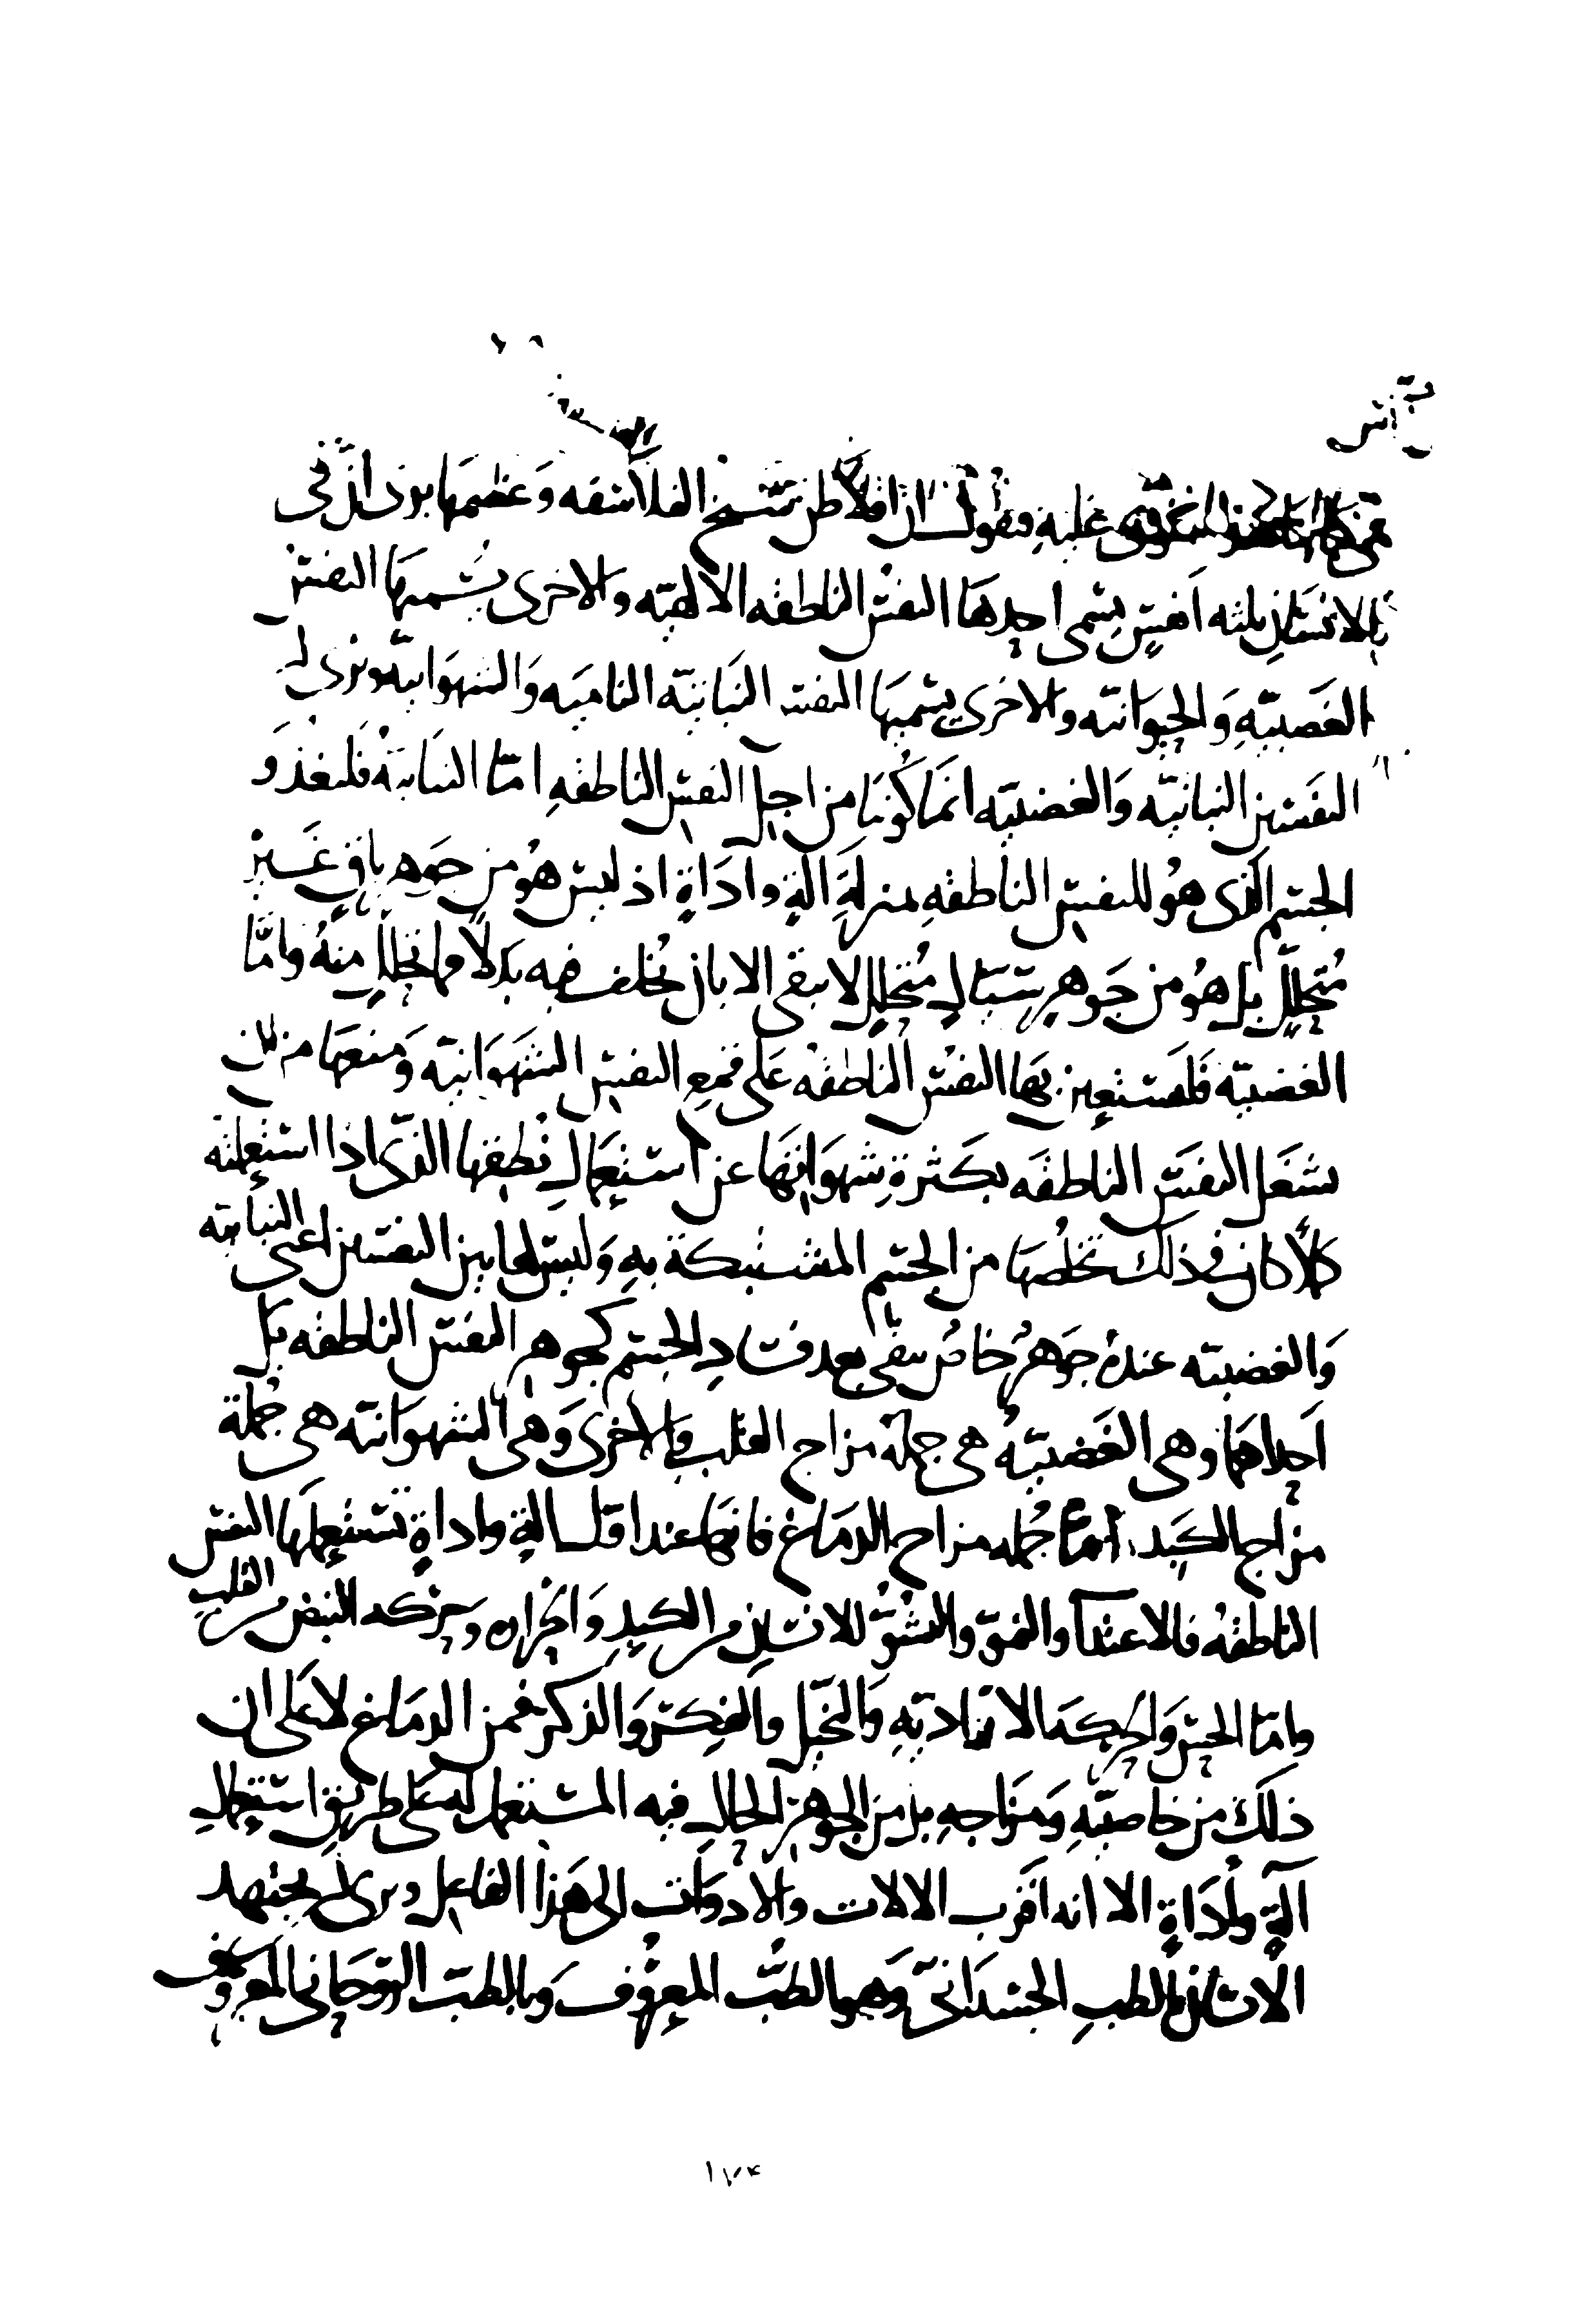 عليه فنقول ان افلاطن شيخ الفلاسفه وعظيمها يرى ان في
الانسان ثلثه انفس يسمى احدها النفس الناطقه الالهيه والاخرى يسميها النفس
الغضبيه والحيوانيه والاخرى يسميها النفس النباتيه الناميه والشهوانيه ويرى ان
النفسين النباتيه والغضبيه انما كونتا من اجل النفس الناطقه اما النباتيه فلتغذو
الجسم الذى هو للنفس الناطقه بمنزلة الة واداة اذ ليس هو من جوهر باق غير
متحلل بل هو من جوهر سيال متحلل لا يبقى الا بان يخلف فيه بدلا مما تحلل منه واما
الغضبيه فلتستعين بها النفس الناطقه على قمع النفس الشهوانيه ومنعها من ان
تشغل النفس الناطقه بكثرة شهواتها عن استعمال نطقها الذى اذا استعملته
كملا كان فى ذلك تخلصها من الجسم المشتبكة به وليس لهاتين النفسين اعنى النباتيه
والغضبيه عنده جوهر خاص يبقى بعد فساد الجسم كجوهر النفس الناطقه بل
احداهما وهى الغضبيه هى جملة مزاج القلب والاخرى وهى الشهوانيه هى جملة
مزاج الكبد اما جمله مزاج الدماغ فانها عنده اول الة واداة تستعملها النفس
الناطقه فالاغتذا والنمو والنشو للانسان من الكبد والحراره وحركه النبض من القلب
واما الحس والحركه الاراديه والتخيل والفكر والذكر فمن الدماغ لا على ان
ذلك من خاصيته ومزاجه بل من الجوهر الحال فيه المستعمل له على طريق استعمال
آلة واداة الا انه اقرب الالات والادوات الى هذا الفاعل ويرى ان يجتهد
الانسان بالطب الجسدانى وهو الطب المعروف وبالطب الروحانى المعروف
١٧۴